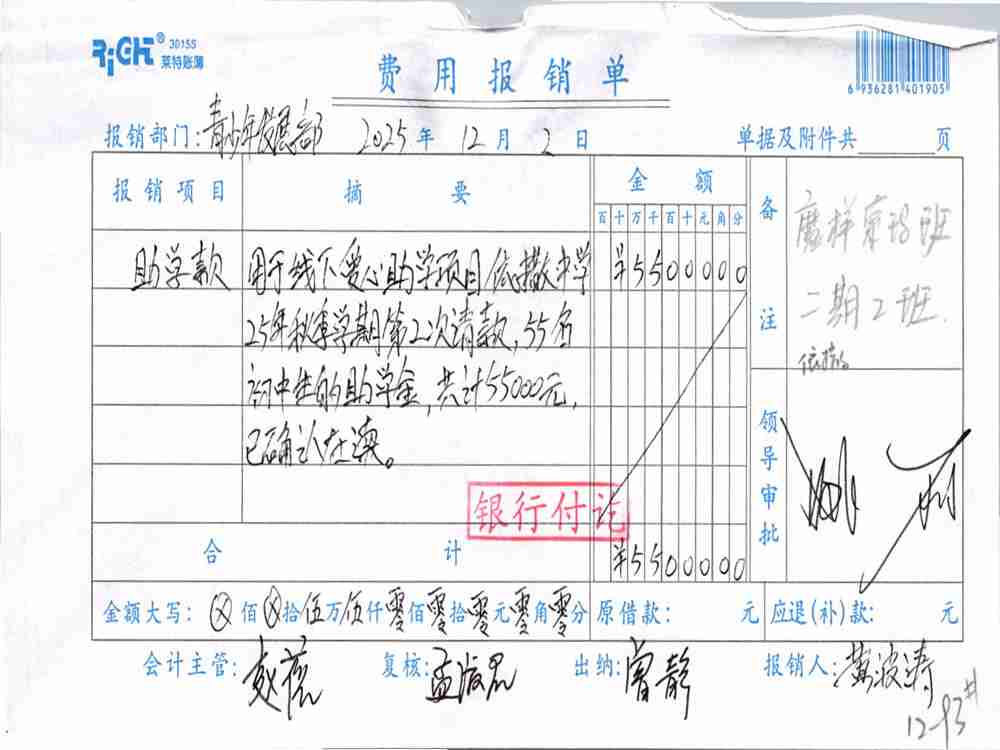 RiGHT® 3015S
莱特账簿
费用报销单
6 936281 401905
报销部门:青少年发展部 2025年12月2日 单据及附件共 页
报销项目 摘要 金额 备注
百十万千百十元角分
助学款 用于线下爱心助学项目依撒中学 ¥5500000
25年秋季学期第2次请款,55名
初中生的助学金,共计55000元,
已确认在读。
二期2班.
依撒
领导审批
银行付讫
合计 ¥5500000
金额大写:ⓧ佰ⓧ拾伍万伍仟零佰零拾零元零角零分 原借款: 元 应退(补)款: 元
会计主管: 复核:孟 出纳:曾静 报销人:黄波涛
12-93#